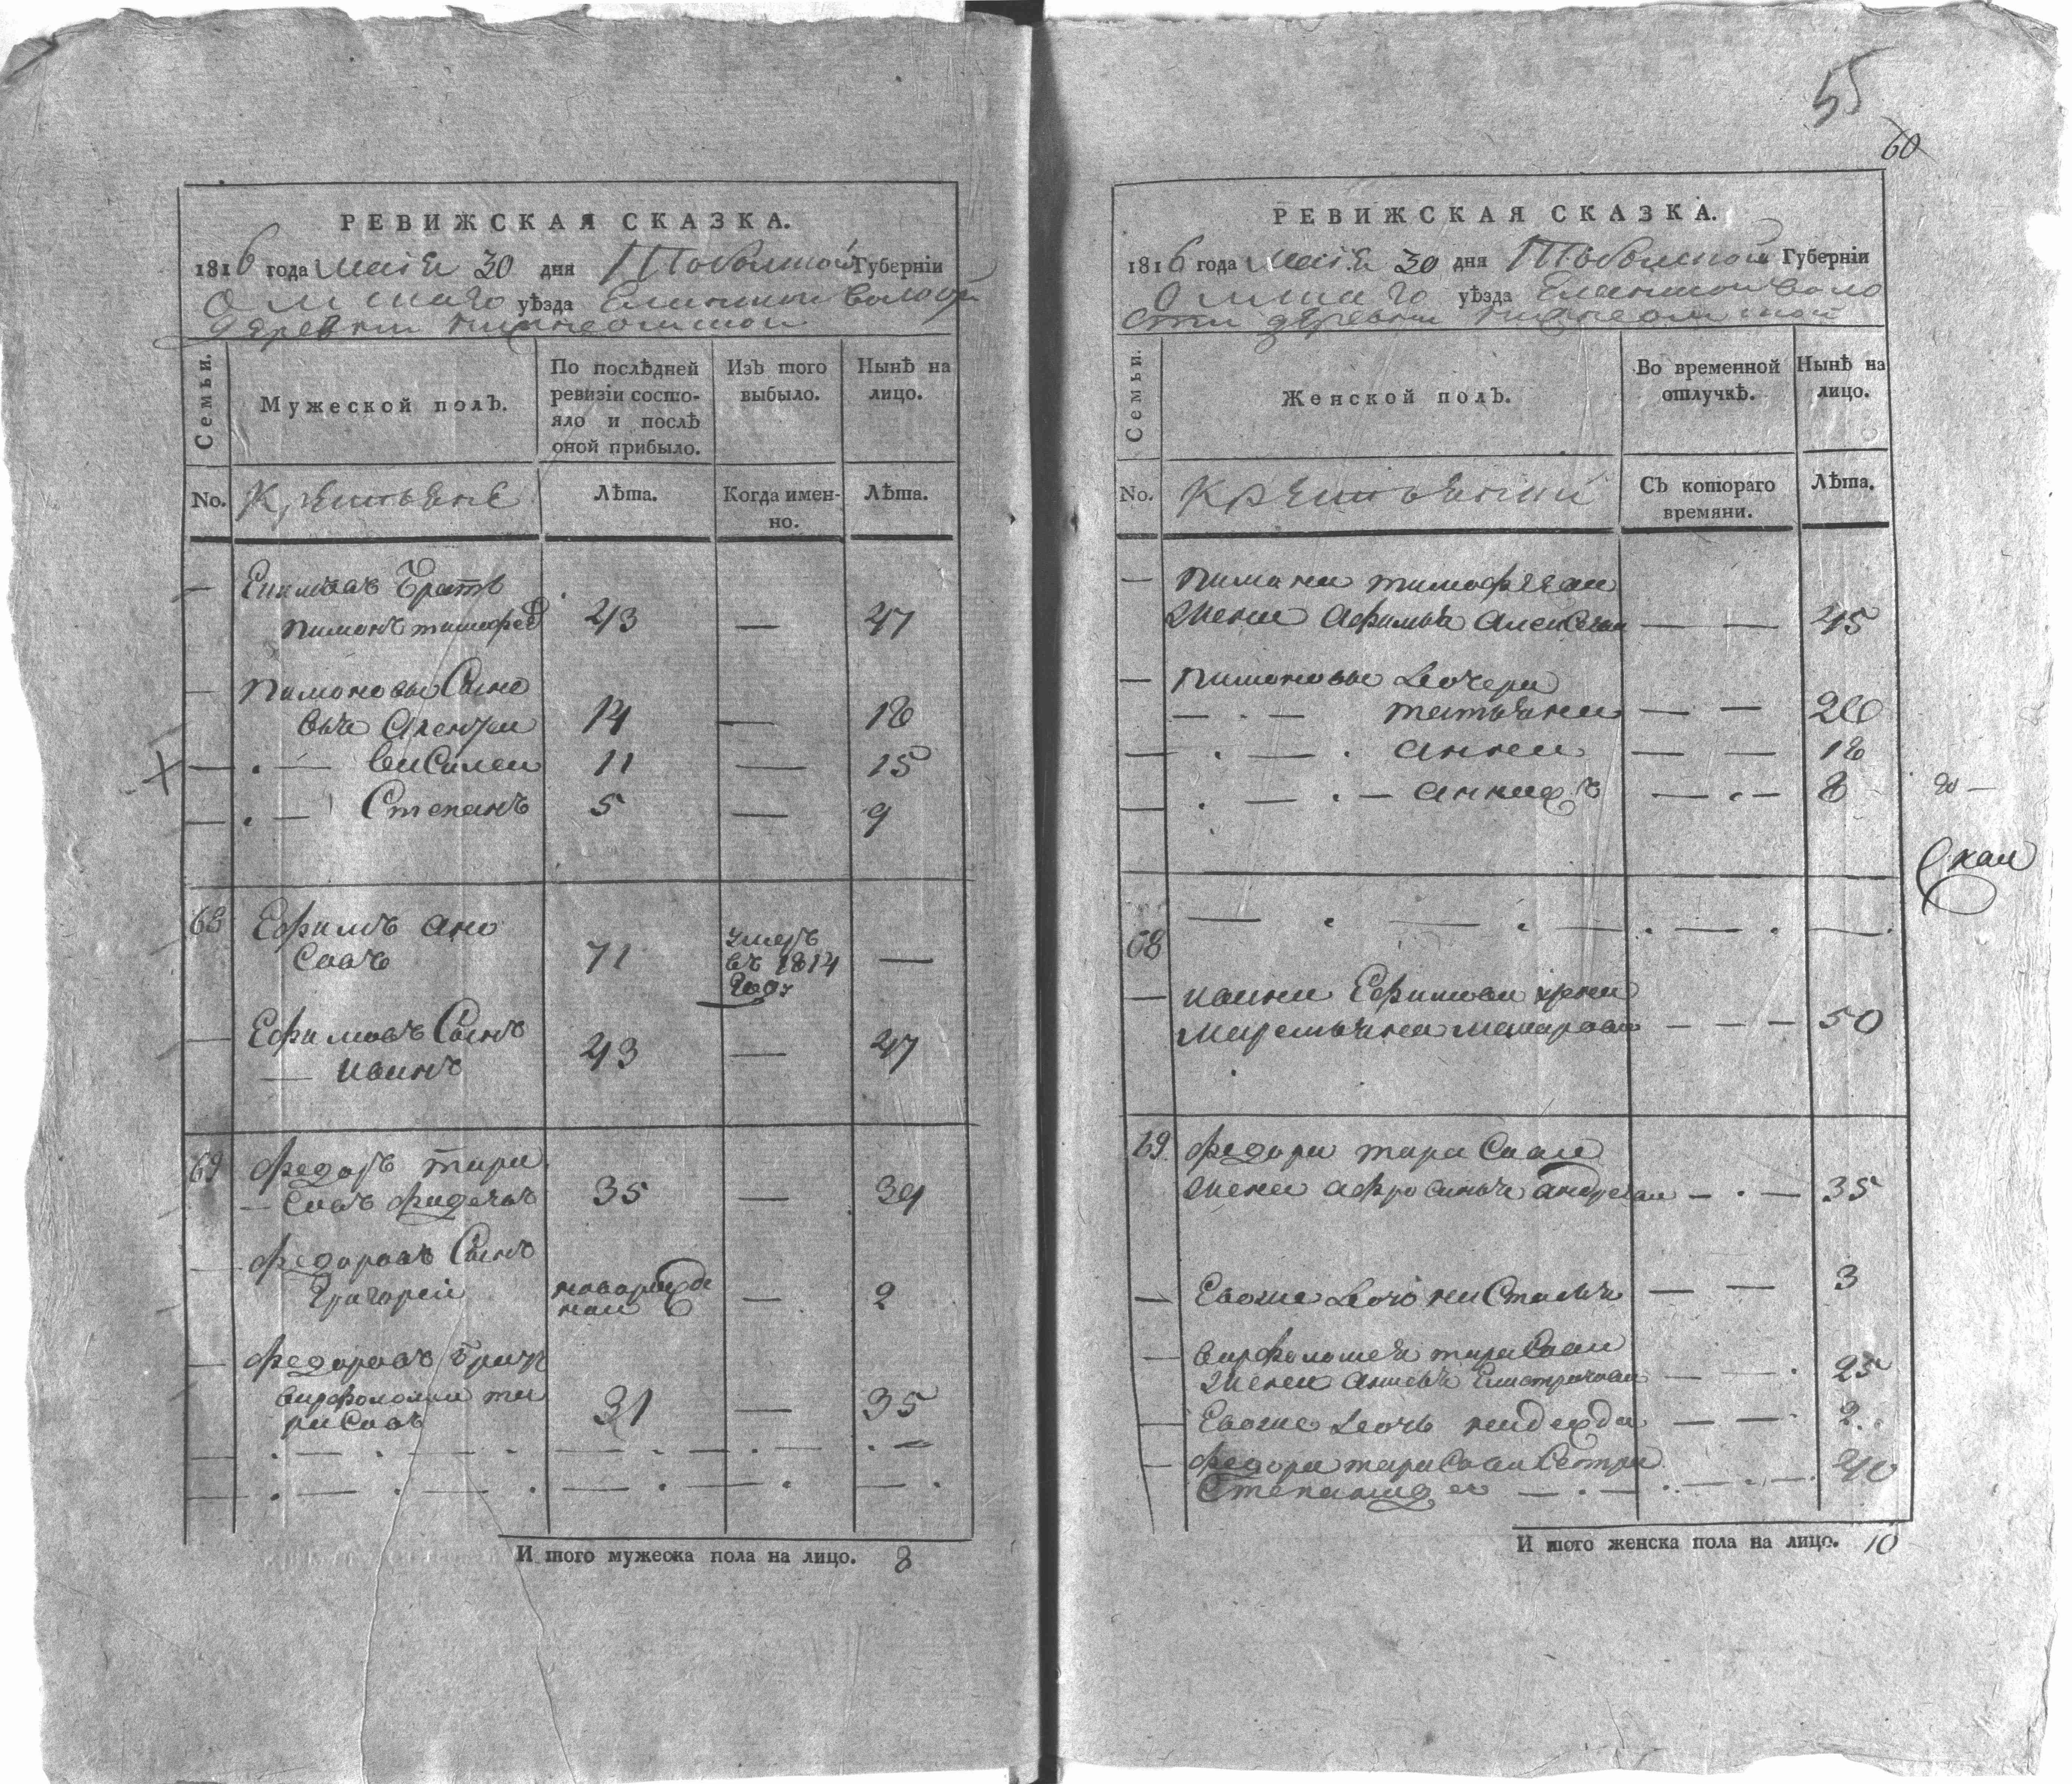 55
60
РЕВИЖСКАЯ СКАЗКА.
1816 года маія 30 дня Тобольской Губерніи
Омскаго уѣзда Еланской волости
деревни нижнеомской
Семьи.
Мужеской полъ.
По послѣдней
ревизіи состо-
яло и послѣ
оной прибыло.
Изъ того
выбыло.
Нынѣ на
лицо.
No.
Крестьяне
Лѣта.
Когда имен-
но.
Лѣта.
— братъ
Пимонъ тимофеев 43 — 47
— Пимоновы Сыно
вья Алексеи 14 — 18
— . — василеи 11 — 15
— . — Степанъ 5 — 9
68 Ефимъ ано
совъ 71 умеръ
въ 1814
году —
— Ефимовъ Сынъ
— иванъ 43 — 47
69 федоръ тара
— совъ фадеевъ 35 — 39
— федоровъ Сынъ
Григореи новорожде
нои — 2
— федоровъ братъ
варфоломеи та
расовъ 31 — 35
И того мужеска пола на лицо. 8
РЕВИЖСКАЯ СКАЗКА.
1816 года маія 30 дня Тобольской Губерніи
Омскаго уѣзда Еланской воло
сти деревни нижнеомской
Семьи.
Женской полъ.
Во временной
отлучкѣ.
Нынѣ на
лицо.
No.
Крестьянки
Съ котораго
времяни.
Лѣта.
— Пимона тимофеева
жена афимья алексеева — — 45
— Пимоновы дочери
— . — татьяна — — 20
— . . анна — — 18
— . — . — — . — 8
68 — . — . — . — . —
— ивана Ефимова жена
маремьяна макарова — — — 50
69 федора тарасова
жена афросинья андреева — . — 35
— Евоже дочь настасья — — 3
— варфоломея тарасова
жена — — . 25
— Евоже дочь надежда — — . 2
— федора тарасова Сестра 40
Степанида — . — . . — . — .
И того женска пола на лицо. 10